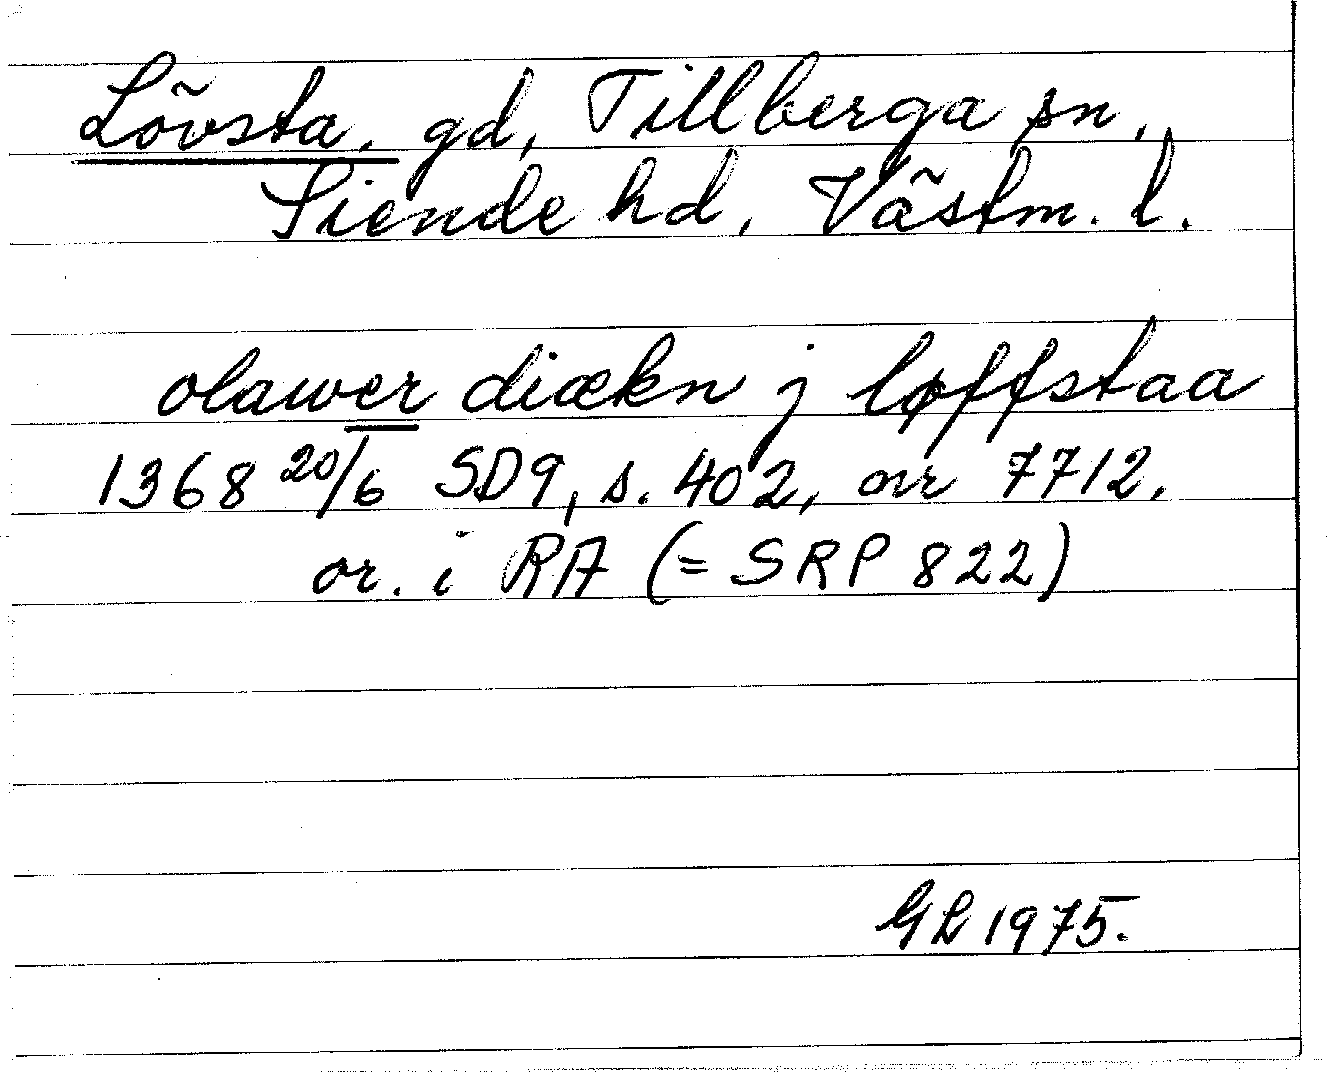 Lövsta, gd, Tillberga sn,
Siende hd, Västm. l.
olawer diækn j løffstaa
1368 20/6 SD9, s. 402, nr 7712,
or. i RA (= SRP 822)
GL 1975.